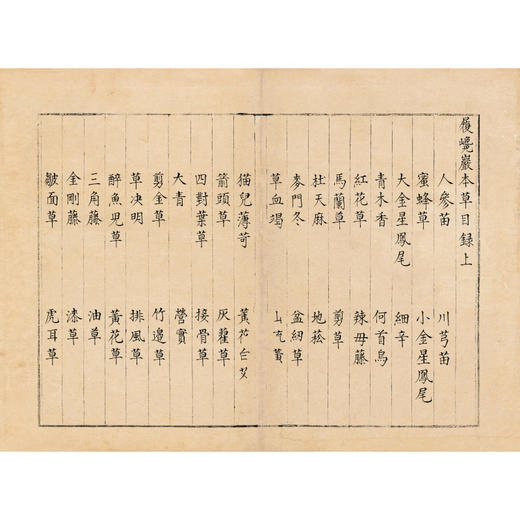 履巉巖本草目録上
人參苗 川芎苗
蜜蜂草 小金星鳳尾
大金星鳳尾 細辛
青木香 何首烏
紅花草 辣母藤
馬蘭草 剪草
杜天麻 地菘
麥門冬 盆紉草
草血竭
猫兒薄苛 花白艾
箭頭草 灰藋草
四對葉草 接骨草
大青 營實
剪金草 竹邉草
草决明 排風草
醉魚兒草 黃花草
三角藤 油草
金剛藤 漆草
皺面草 虎耳草